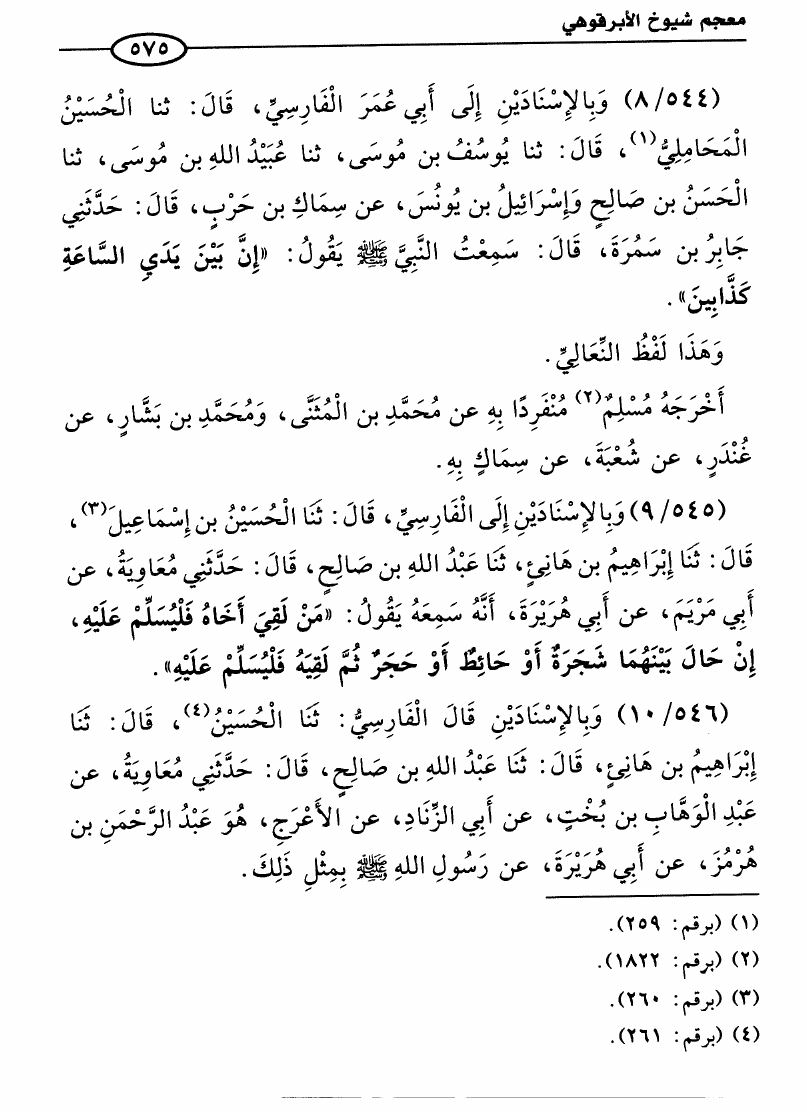 معجم شيوخ الأبرقوهي
٥٧٥
(٨/٥٤٤) وَبِالإِسْنَادَيْنِ إِلَى أَبِي عُمَرَ الْفَارِسِيِّ، قَالَ: ثنا الْحُسَيْنُ
الْمَحَامِلِيُّ(١)، قَالَ: ثنا يُوسُفُ بن مُوسَى، ثنا عُبَيْدُ اللهِ بن مُوسَى، ثنا
الْحَسَنُ بن صَالِحٍ وَإِسْرَائِيلُ بن يُونُسَ، عن سِمَاكِ بن حَرْبٍ، قَالَ: حَدَّثَنِي
جَابِرُ بن سَمُرَةَ، قَالَ: سَمِعْتُ النَّبِيَّ ﷺ يَقُولُ: «إِنَّ بَيْنَ يَدَيِ السَّاعَةِ
كَذَّابِينَ».
وَهَذَا لَفْظُ النِّعَالِيِّ.
أَخْرَجَهُ مُسْلِمٌ(٢) مُنْفَرِدًا بِهِ عن مُحَمَّدِ بن الْمُثَنَّى، وَمُحَمَّدِ بن بَشَّارٍ، عن
غُنْدَرٍ، عن شُعْبَةَ، عن سِمَاكٍ بِهِ.
(٩/٥٤٥) وَبِالإِسْنَادَيْنِ إِلَى الْفَارِسِيِّ، قَالَ: ثَنَا الْحُسَيْنُ بن إِسْمَاعِيلَ(٣)،
قَالَ: ثَنَا إِبْرَاهِيمُ بن هَانِئٍ، ثَنَا عَبْدُ اللهِ بن صَالِحٍ، قَالَ: حَدَّثَنِي مُعَاوِيَةُ، عن
أَبِي مَرْيَمَ، عن أَبِي هُرَيْرَةَ، أَنَّهُ سَمِعَهُ يَقُولُ: «مَنْ لَقِيَ أَخَاهُ فَلْيُسَلِّمْ عَلَيْهِ،
إِنْ حَالَ بَيْنَهُمَا شَجَرَةٌ أَوْ حَائِطٌ أَوْ حَجَرٌ ثُمَّ لَقِيَهُ فَلْيُسَلِّمْ عَلَيْهِ».
(١٠/٥٤٦) وَبِالإِسْنَادَيْنِ قَالَ الْفَارِسِيُّ: ثَنَا الْحُسَيْنُ(٤)، قَالَ: ثَنَا
إِبْرَاهِيمُ بن هَانِئٍ، قَالَ: ثَنَا عَبْدُ اللهِ بن صَالِحٍ، قَالَ: حَدَّثَنِي مُعَاوِيَةُ، عن
عَبْدِ الْوَهَّابِ بن بُخْتٍ، عن أَبِي الزِّنَادِ، عن الأَعْرَجِ، هُوَ عَبْدُ الرَّحْمَنِ بن
هُرْمُزَ، عن أَبِي هُرَيْرَةَ، عن رَسُولِ اللهِ ﷺ بِمِثْلِ ذَلِكَ.
(١) (برقم: ٢٥٩).
(٢) (برقم: ١٨٢٢).
(٣) (برقم: ٢٦٠).
(٤) (برقم: ٢٦١).